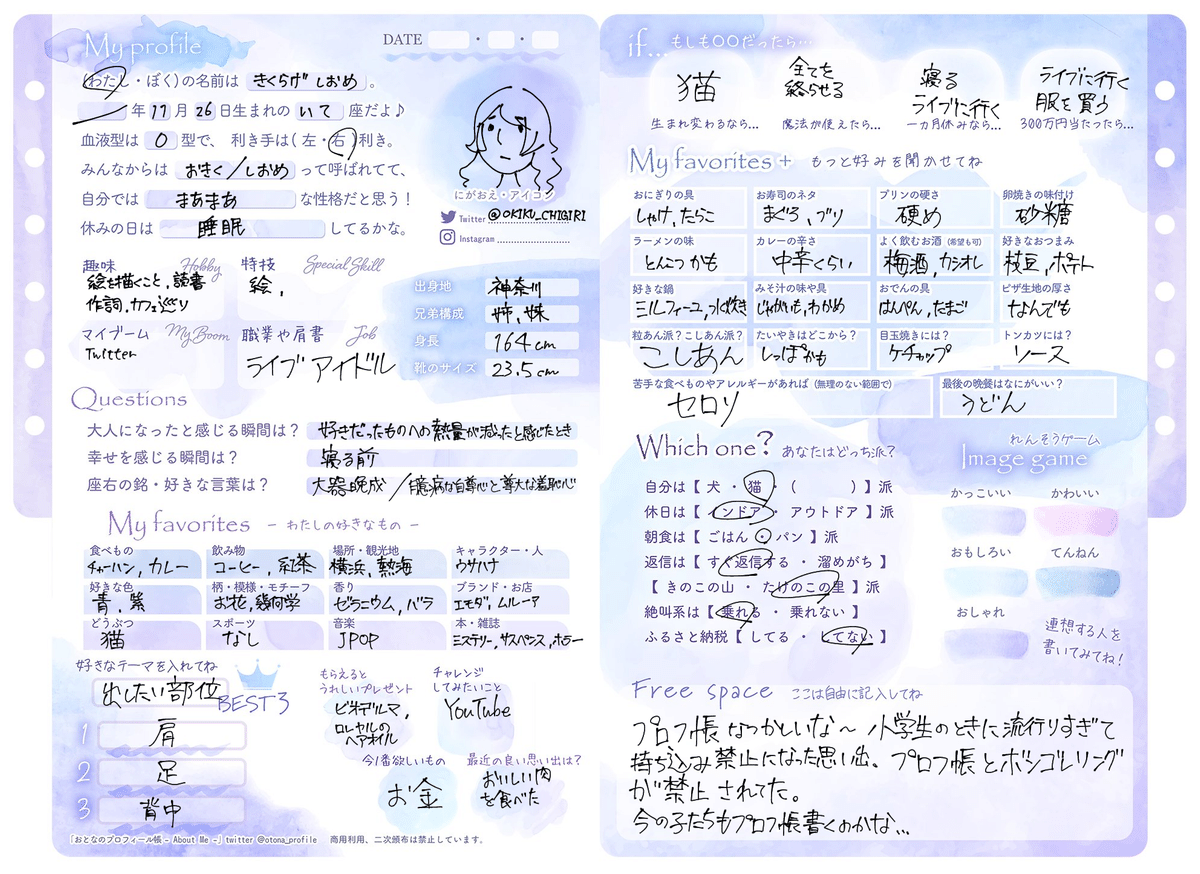 My profile
DATE
(わたし・ぼく)の名前は きくらげ しおめ 。
年 11 月 26 日生まれの いて 座だよ♪
血液型は O 型で、 利き手は( 左・右 )利き。
みんなからは おきく/しおめ って呼ばれてて、
自分では まあまあ な性格だと思う!
休みの日は 睡眠 してるかな。
にがおえ・アイコン
Twitter @OKIKU_CHIGIRI
Instagram
趣味 Hobby
絵を描くこと, 読書
作詞, カフェ巡り
特技 Special Skill
絵,
マイブーム My Boom
Twitter
職業や肩書 Job
ライブアイドル
出身地 神奈川
兄弟構成 姉, 妹
身長 164cm
靴のサイズ 23.5cm
Questions
大人になったと感じる瞬間は? 好きだったものへの熱量が減ったと感じたとき
幸せを感じる瞬間は? 寝る前
座右の銘・好きな言葉は? 大器晩成/臆病な自尊心と尊大な羞恥心
My favorites - わたしの好きなもの -
食べもの チャーハン, カレー
飲み物 コーヒー, 紅茶
場所・観光地 横浜, 熱海
キャラクター・人 ウサハナ
好きな色 青, 紫
柄・模様・モチーフ お花, 幾何学
香り ゼラニウム, バラ
ブランド・お店 エモダ, ムルーア
どうぶつ 猫
スポーツ なし
音楽 JPOP
本・雑誌 ミステリー, サスペンス, ホラー
好きなテーマを入れてね
出したい部位 BEST3
1 肩
2 足
3 背中
もらえると
うれしいプレゼント
ビオデルマ,
ロレヤルの
ヘアオイル
チャレンジ
してみたいこと
YouTube
今1番欲しいもの
お金
最近の良い思い出は?
おいしい肉
を食べた
「おとなのプロフィール帳 - About Me -」twitter @otona_profile 商用利用、二次頒布は禁止しています。
if... もしも〇〇だったら…
猫
生まれ変わるなら…
全てを
終らせる
魔法が使えたら…
寝る
ライブに行く
一カ月休みなら…
ライブに行く
服を買う
300万円当たったら…
My favorites + もっと好みを聞かせてね
おにぎりの具 しゃけ, たらこ
お寿司のネタ まぐろ, ブリ
プリンの硬さ 硬め
卵焼きの味付け 砂糖
ラーメンの味 とんこつかも
カレーの辛さ 中辛くらい
よく飲むお酒 (希望も可) 梅酒, カシオレ
好きなおつまみ 枝豆, ポテト
好きな鍋 ミルフィーユ, 水炊き
みそ汁の味や具 じゃがいも, わかめ
おでんの具 はんぺん, たまご
ピザ生地の厚さ なんでも
粒あん派?こしあん派? こしあん
たいやきはどこから? しっぽかも
目玉焼きには? ケチャップ
トンカツには? ソース
苦手な食べものやアレルギーがあれば (無理のない範囲で)
セロリ
最後の晩餐はなにがいい?
うどん
Which one? あなたはどっち派?
自分は【 犬 ・ 猫 ・ ( ) 】派
休日は【 インドア ・ アウトドア 】派
朝食は【 ごはん ・ パン 】派
返信は【 すぐ返信する ・ 溜めがち 】
【 きのこの山 ・ たけのこの里 】派
絶叫系は【 乗れる ・ 乗れない 】
ふるさと納税【 してる ・ してない 】
れんそうゲーム
Image game
かっこいい かわいい
おもしろい てんねん
おしゃれ
連想する人を
書いてみてね!
Free space ここは自由に記入してね
プロフ帳なつかしいな〜 小学生のときに流行りすぎて
持ち込み禁止になった思い出、プロフ帳とボンゴレリング
が禁止されてた。
今の子たちもプロフ帳書くのかな...